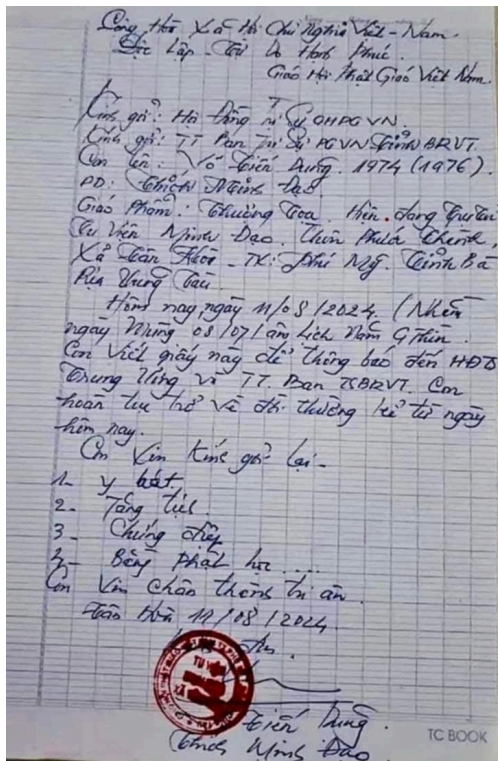 Cộng Hòa Xã Hội Chủ Nghĩa Việt-Nam.
Độc Lập - Tự Do Hạnh Phúc.
Giáo Hội Phật Giáo Việt Nam.
Kính gởi: Hội Đồng Trị Sự GHPGVN.
Kính gởi: TT Ban Trị Sự PGVN Tỉnh BRVT.
Con tên: Võ Tiến Dũng. 1974 (1976).
PD: Thích Minh Đạo
Giáo Phẩm: Thượng Tọa. Hiện đang
Tu Viện Minh Đạo. Thôn Phước Thành
Xã Tân Hòa - TX: Phú Mỹ. Tỉnh Bà
Rịa Vũng Tàu.
Hôm nay, ngày 11/08/2024. (Nhằm
ngày Mùng 08/07/âm lịch Năm Giáp Thìn.
Con viết giấy này để thông báo đến HĐTS
Trung Ương và TT. Ban TSBRVT. Con
hoàn tục trở về đời thường kể từ ngày
hôm nay.
Con Xin Kính gởi lại -
1- y bát
2- Tăng tịch
3- Chứng điệp
4- Bằng Phật học ....
Con Xin chân thành tri ân.
Tân Hòa 11/08/2024
TU VIỆN
Tiến Dũng
Thích Minh Đạo
TC BOOK